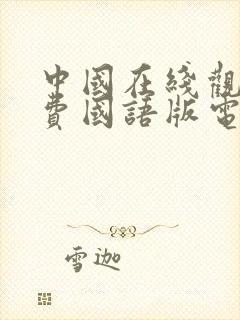 中國在綫觀
費國語版電
雪迦